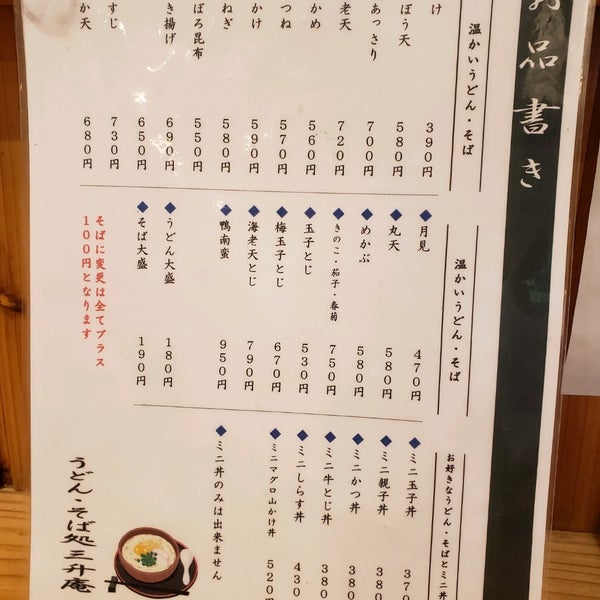 お品書き
温かいうどん・そば
け 390円
ぼう天 580円
あっさり 700円
老天 720円
かめ 560円
つね 570円
かけ 590円
ねぎ 580円
ぼろ昆布 550円
き揚げ 690円
650円
すじ 730円
か天 680円
温かいうどん・そば
◆月見 470円
◆丸天 580円
◆めかぶ 580円
◆きのこ・茄子・春菊 750円
◆玉子とじ 530円
◆梅玉子とじ 670円
◆海老天とじ 790円
◆鴨南蛮 950円
◆うどん大盛 180円
◆そば大盛 190円
そばに変更は全てプラス
100円となります
お好きなうどん・そばとミニ丼
◆ミニ玉子丼 370
◆ミニ親子丼 380
◆ミニかつ丼 380
◆ミニ牛とじ丼 380
◆ミニしらす丼 430
◆ミニマグロ山かけ丼 520円
◆ミニ丼のみは出来ません
うどん・そば処三升庵